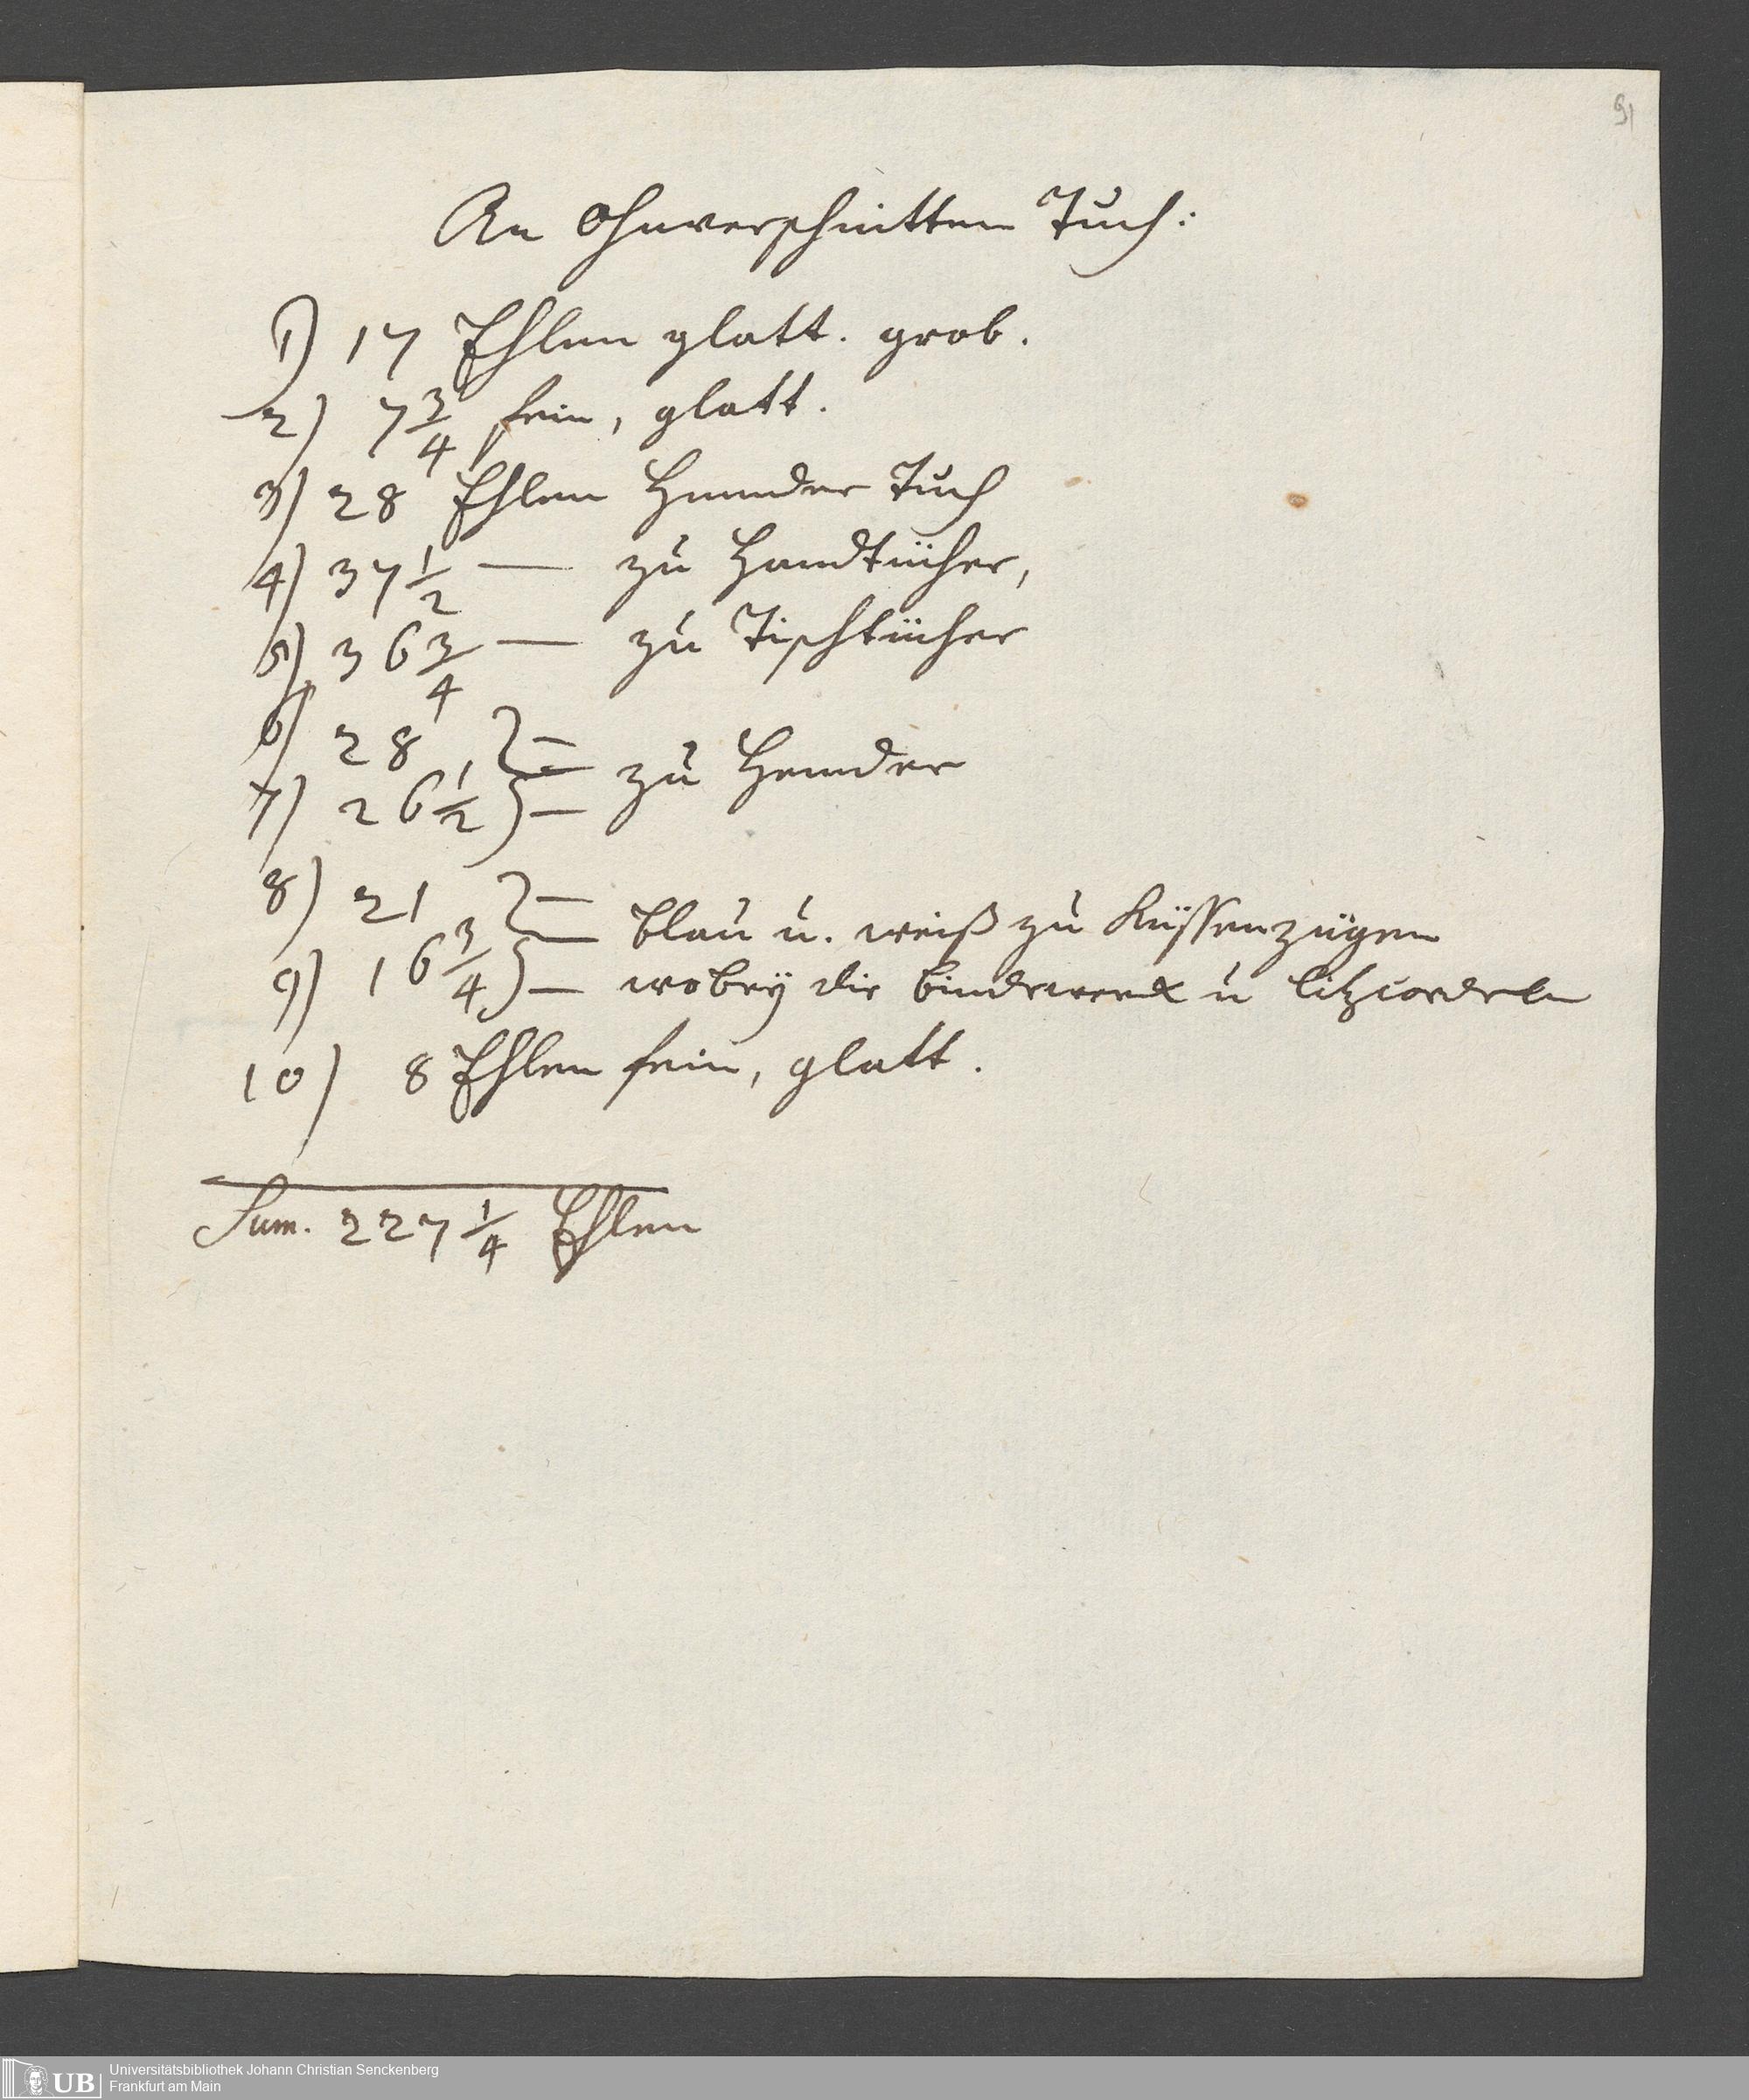 91
An Ohnverschnitten Tuch:
1) 17 Ehlen glatt. grob.
2) 7 3/4 fein, glatt.
3) 28 Ehlen Hemder Tuch
4) 37 1/2 — zu Handtücher,
5) 36 3/4 — zu Tischtücher
6) 28 } —
— zu Hemder
7) 26 1/2 } —
8) 21 } —
— blau u. weiß zu Küssenzügen
9) 16 3/4 } — wobey die binderwerck u litzcordeln
10) 8 Ehlen fein, glatt.
Sum. 227 1/4 Ehlen
UB Universitätsbibliothek Johann Christian Senckenberg
Frankfurt am Main